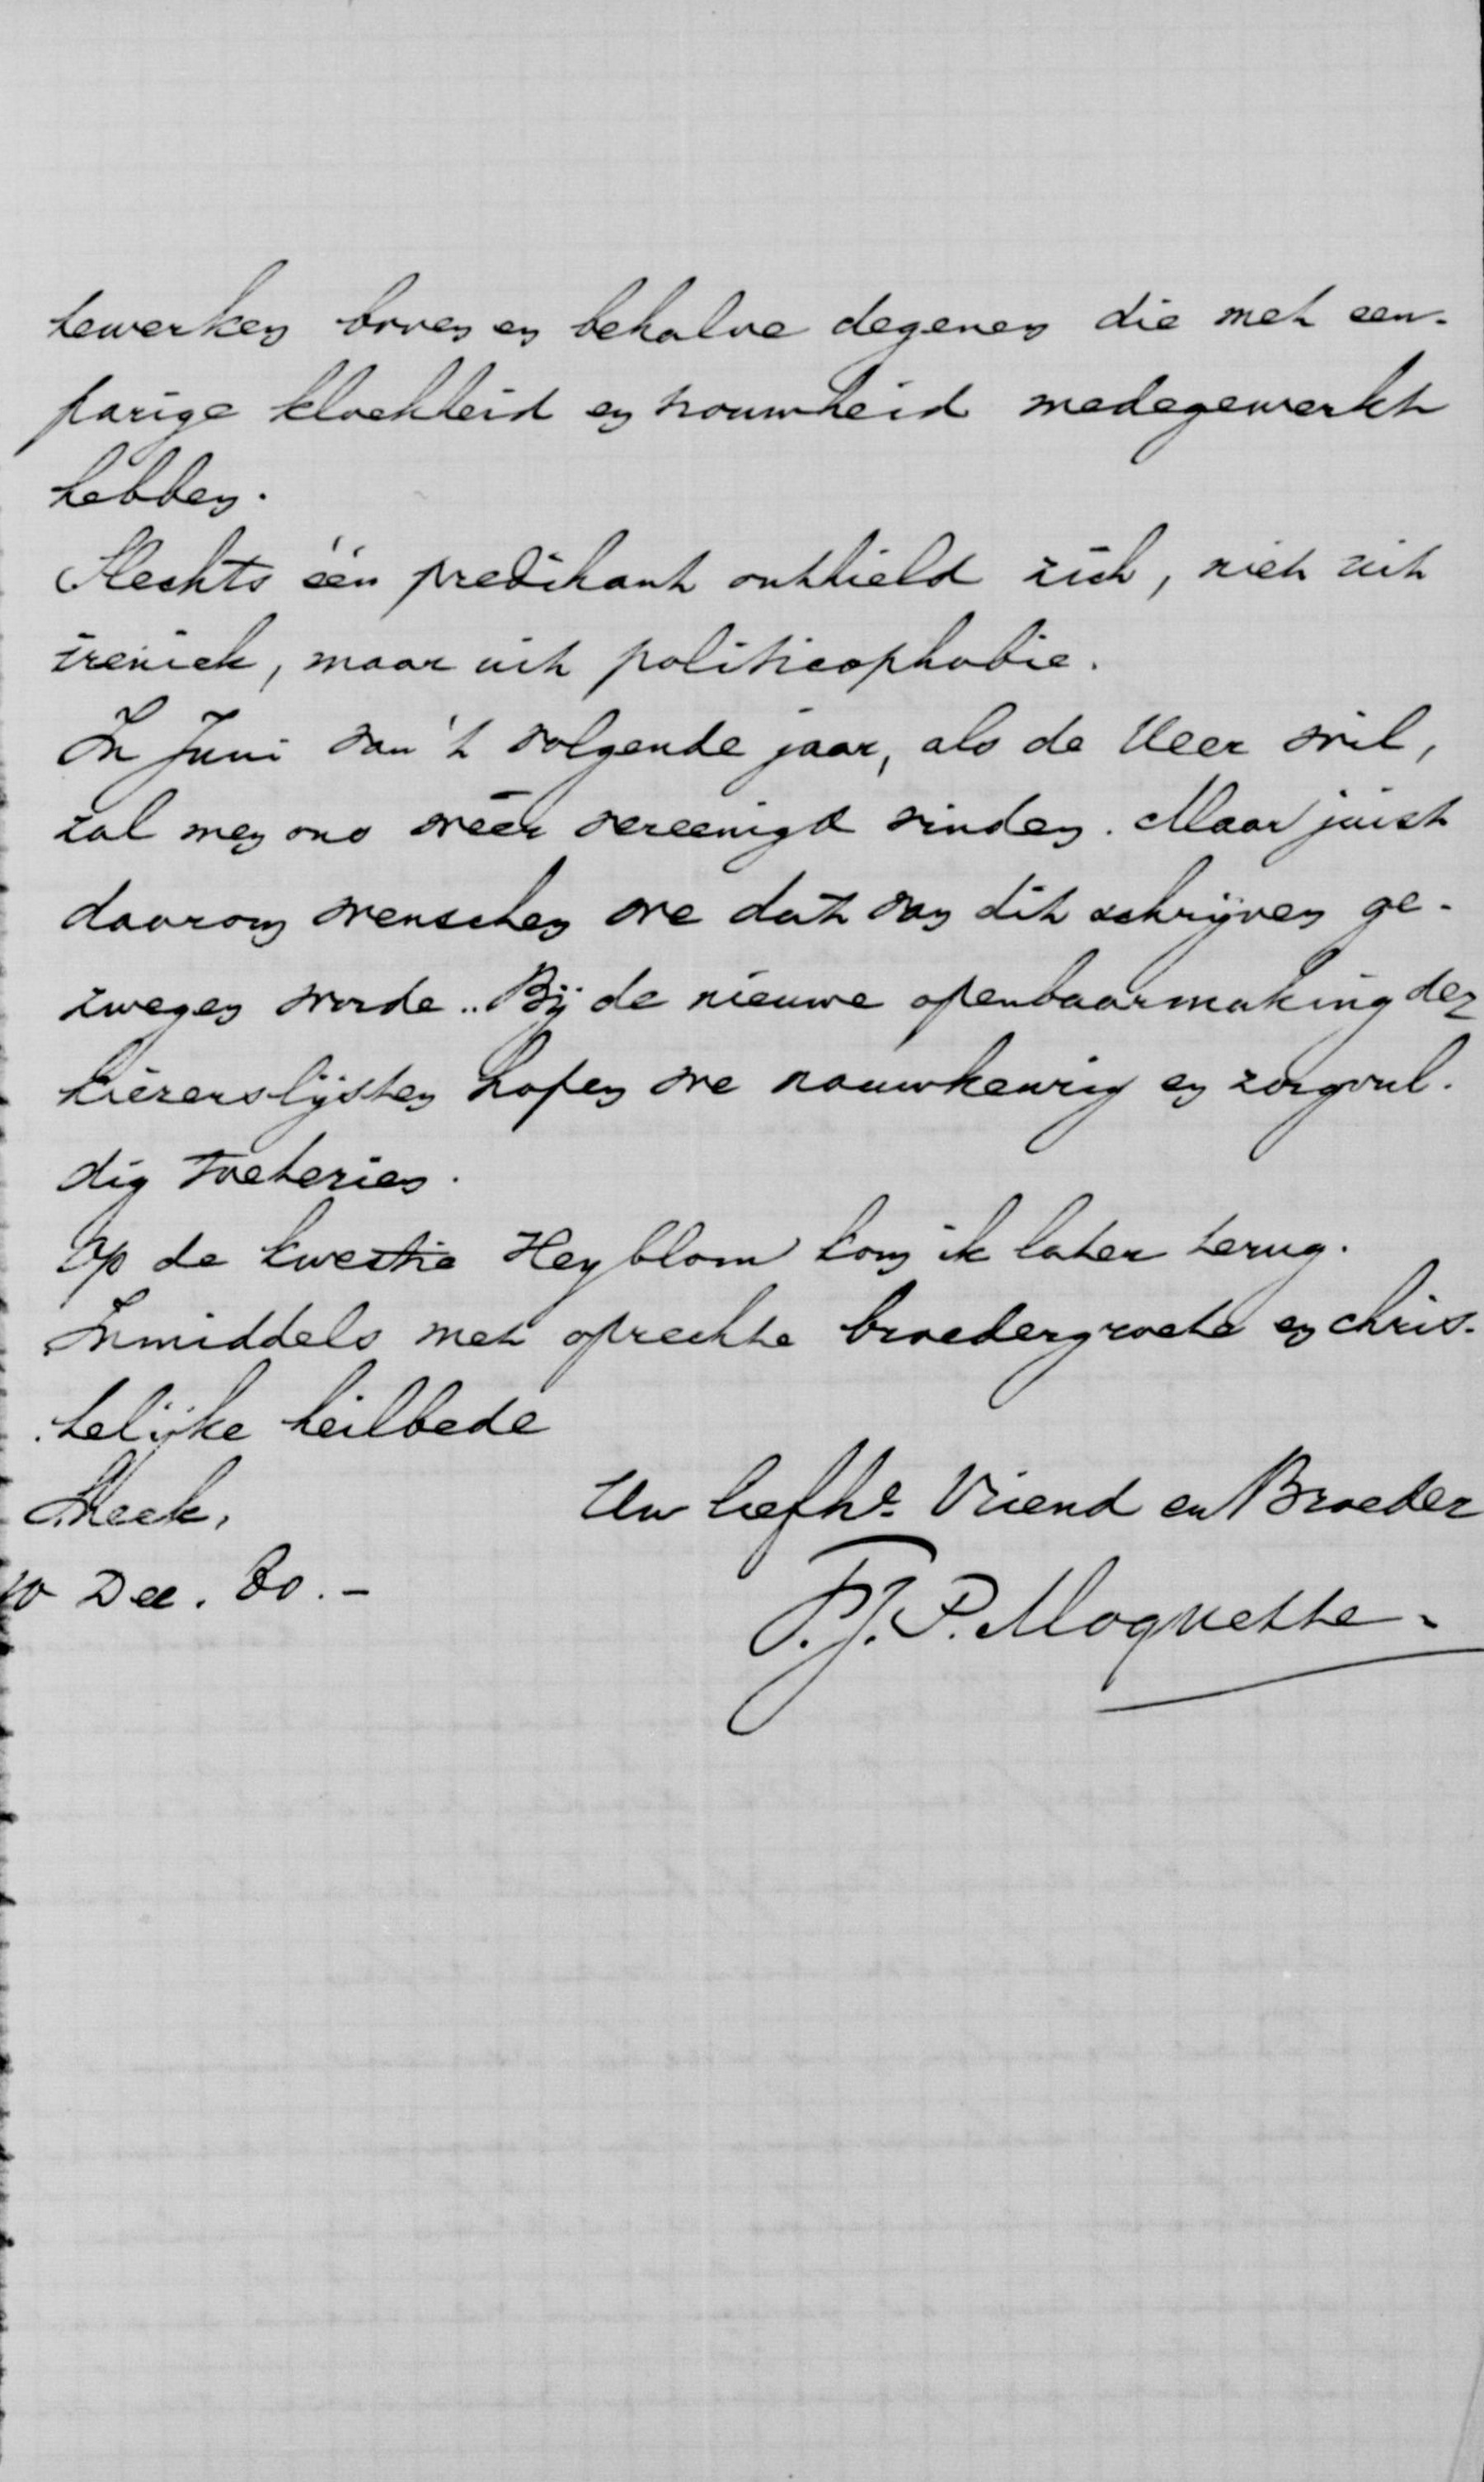 tewerken boven en behalve degenen die met een-
parige kloekheid en trouwheid medegewerkt
hebben.
Slechts één predikant onthield zich, niet uit
ireniek, maar uit politicophobie.
In Juni van 't volgende jaar, als de Heer wil,
zal men ons weer vereenigd vinden. Maar juist
daarom wenschen we dat van dit schrijven ge-
zwegen worde.. Bij de nieuwe openbaarmaking der
kiezerslijsten hopen we nauwkeurig en zorgvul-
dig toetezien.
Op de kwestie Heyblom kom ik later terug.
Inmiddels met oprechte broedergroete en chris-
telijke heilbede
Sneek, Uw liefh. Vriend en Broeder
10 Dec. 80. -
P.J.P. Moquette